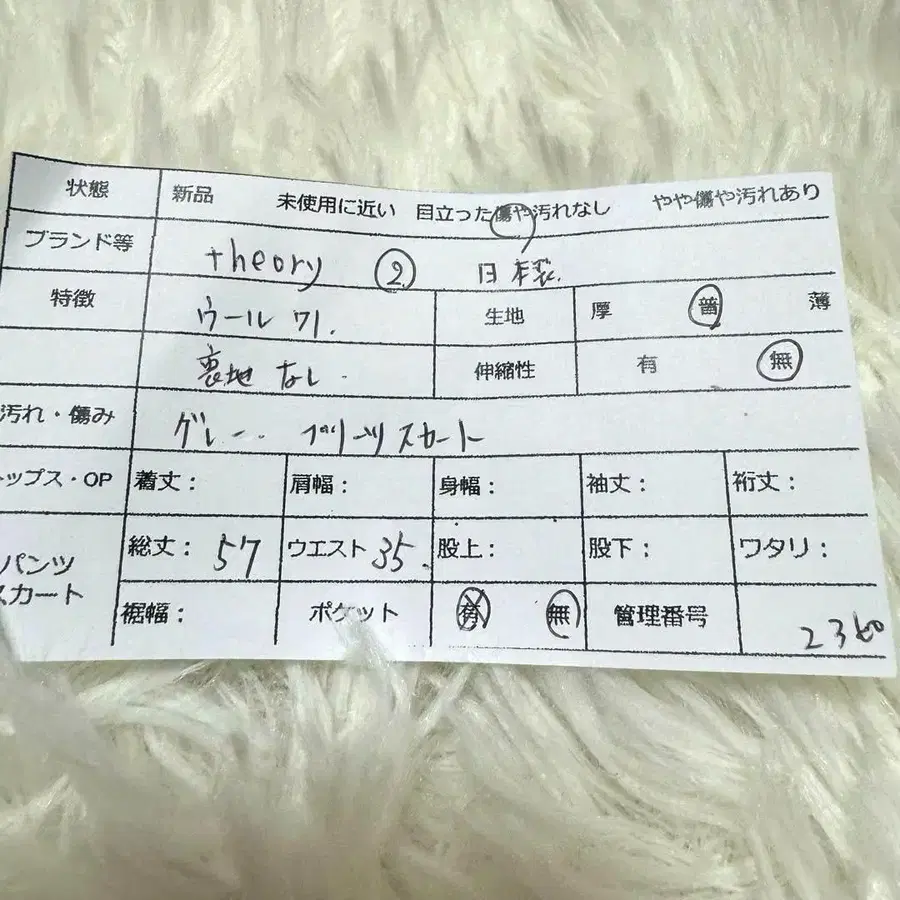 状態 新品 未使用に近い 目立った傷や汚れなし やや傷や汚れあり
ブランド等 theory ② 日本製.
特徴 ウール 71. 生地 厚 普 薄
裏地 なし. 伸縮性 有 無
汚れ・傷み グレー.. プリーツスカート
ップス・OP 着丈: 肩幅: 身幅: 袖丈: 裄丈:
パンツ 総丈: 57 ウエスト 35. 股上: 股下: ワタリ:
スカート 裾幅: ポケット 有 無 管理番号